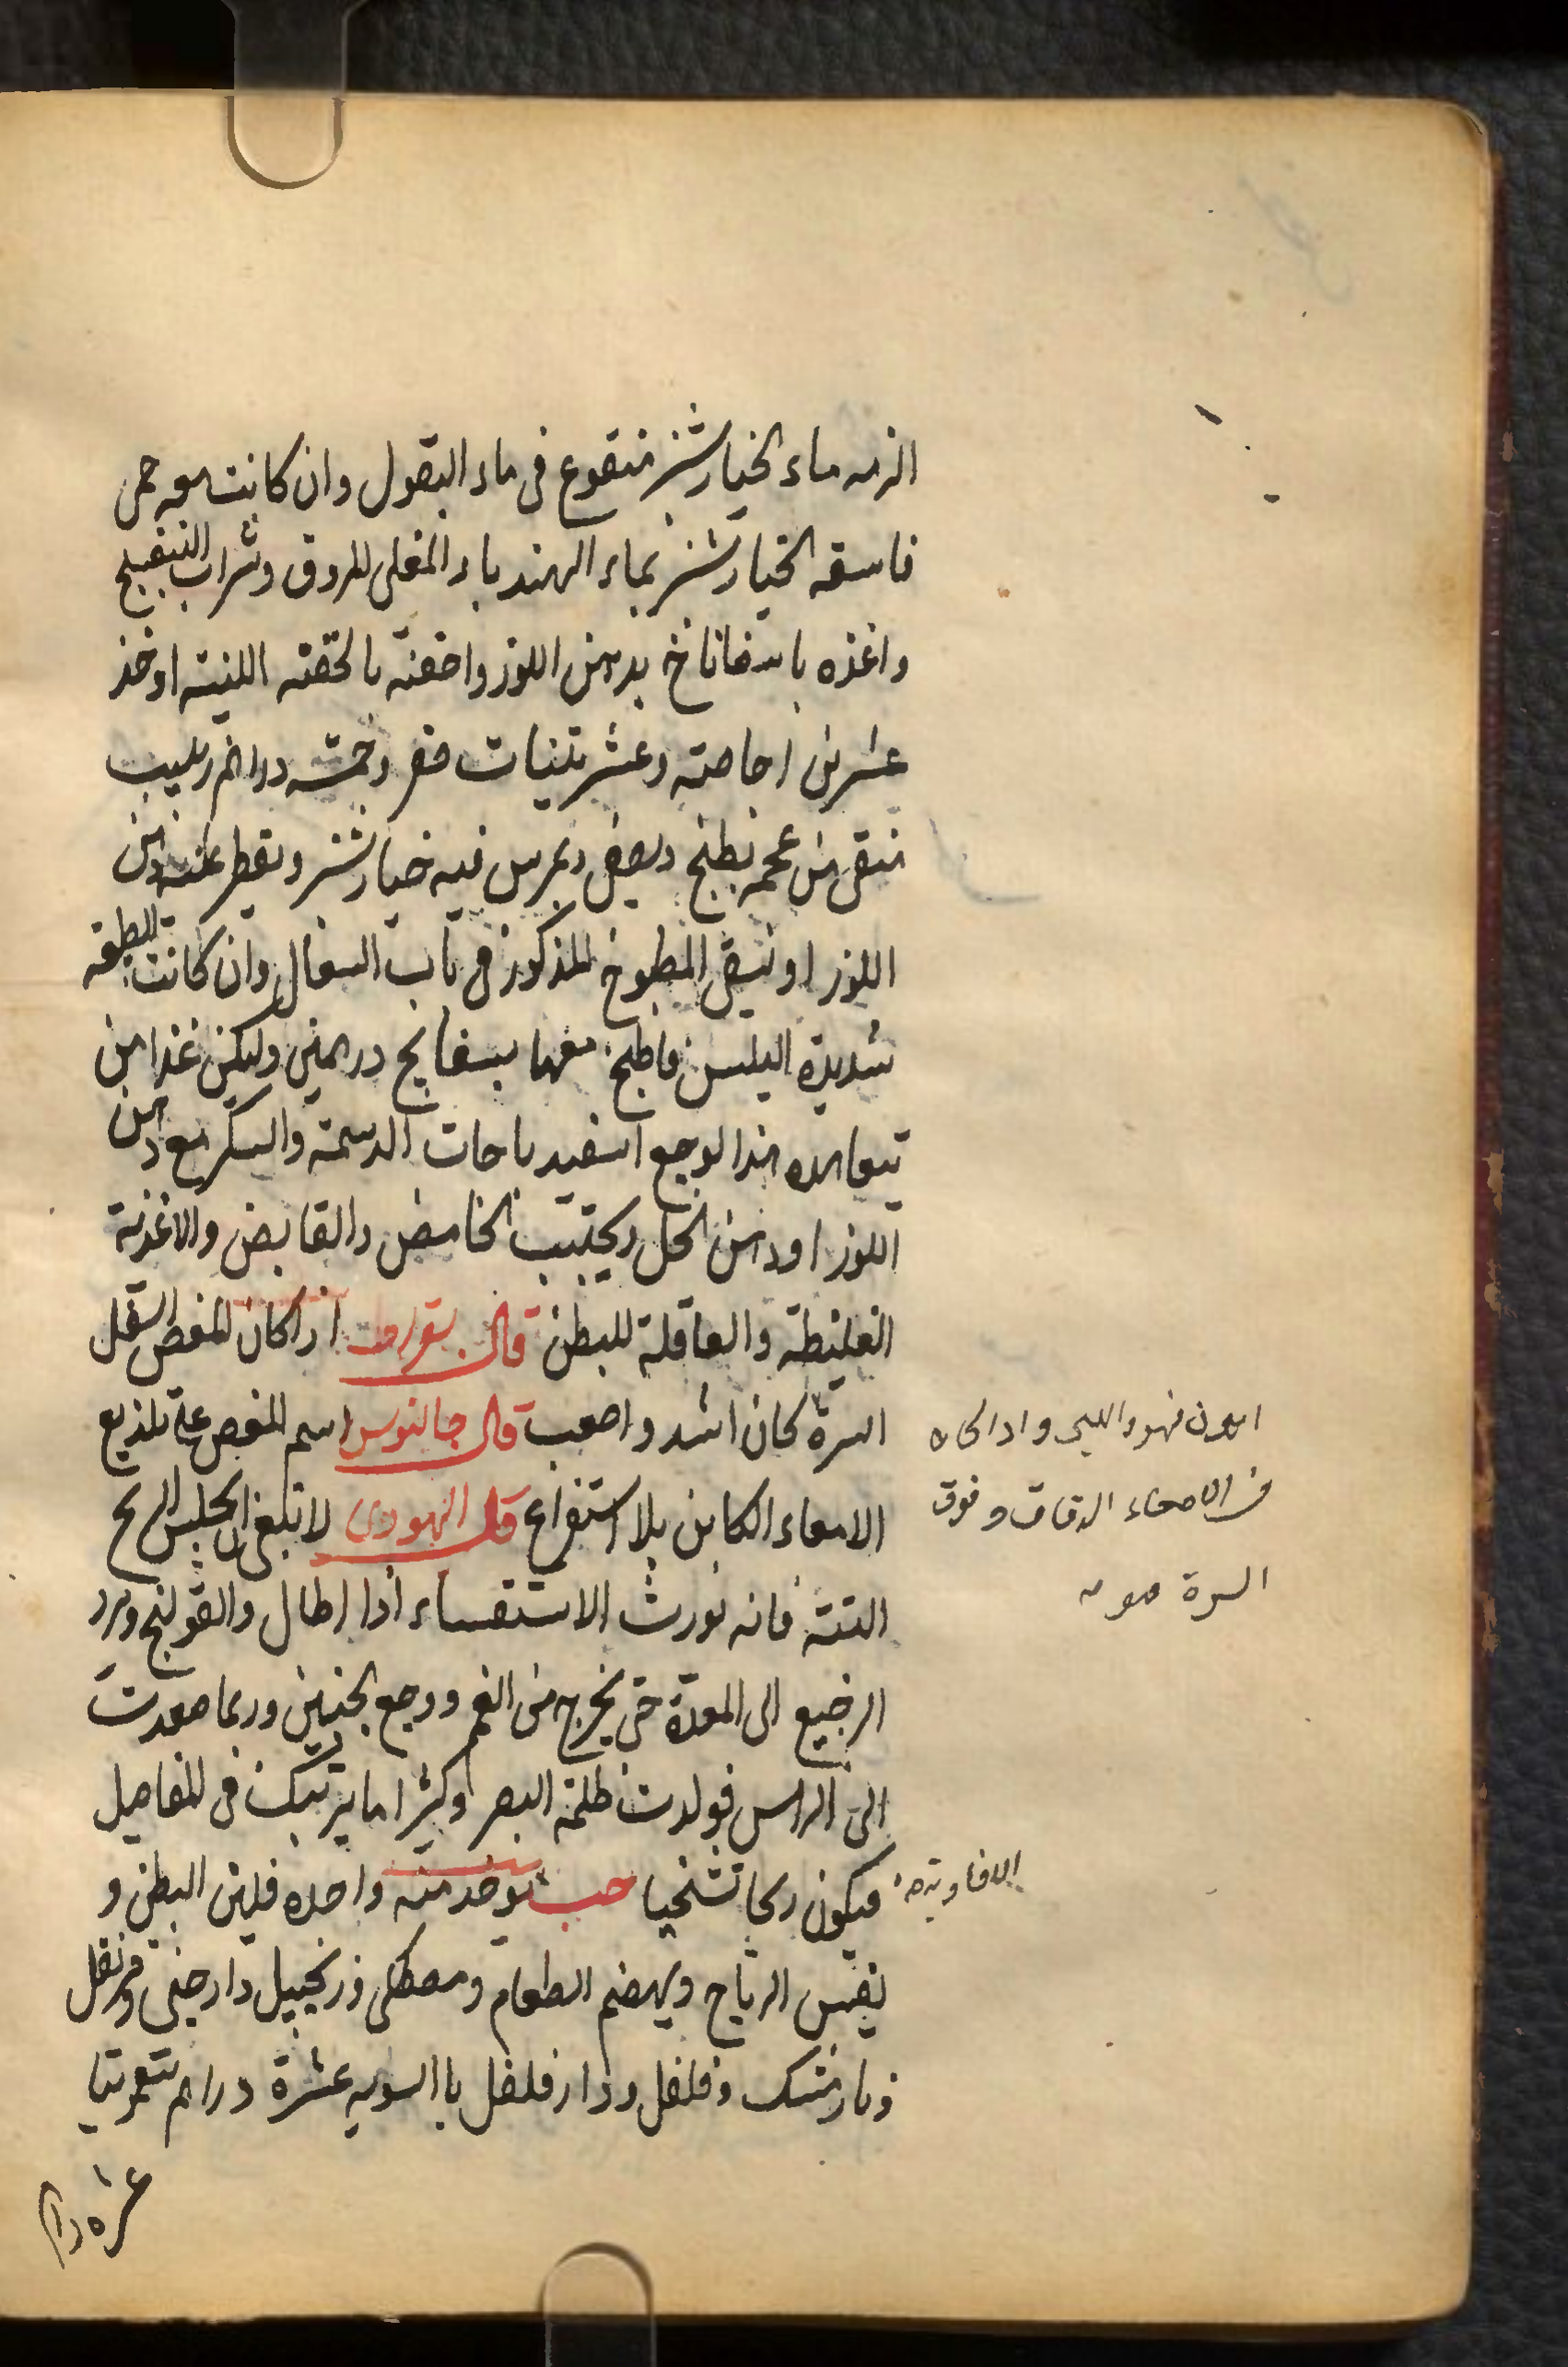 الزمه ماء الخيارشنبر منقوع فى ماء البقول وان كانت معه حمى
فاسقه الخيارشنبر بماء الهندباء المغلى المروق وشراب البنفسج
واغذه باسفاناخ بدهن اللوز واحقنه بالحقنه اللينه او خذ
عشرين اجاصه وعشر تينات صفر وخمسه دراهم زبيب
منقى من عجمه يطبخ ويصفى ويمرس فيه خيارشنبر ويقطر عليه دهن
اللوز او يسقى المطبوخ المذكور فى باب السعال وان كانت الطبيعه
شديدة اليبس فاطبخ معها بسفايج درهمين وليكن غذا من
يتعاهده هذا الوجع اسفيدباجات الدسمة والسكر مع دهن
اللوز او دهن الحل ويجتنب الحامض والقابض والاغذية
الغليظة والعاقلة للبطن قال بقراط اذا كان المغص اسفل
السرة كان اشد واصعب قال جالنوس اسم المغص على تلذيع
الامعاء الكاين بلا استفراغ قال اليهودى لا ينبغى ان يحبس الريح
البتة فانه يورث الاستسقاء اذا اطال والقولنج ويرد
الرجيع الى المعدة حتى يخرج من الفم ووجع الجنبين وربما صعدت
الى الراس فولدت ظلمة البصر وكثيرا ما يرتبك فى المفاصل
فيكون ريحا تشنجيا حب يوخذ منه واحده فيلين البطن و
يفش الرياح ويهضم الطعام ومصطكى وزنجبيل دارصينى وقرنفل
ونارمشك وفلفل ودارفلفل باالسويه عشرة دراهم سقمونيا
عشره دراهم
فى الامعاء الدقاق وفوق
السرة
الافاويه